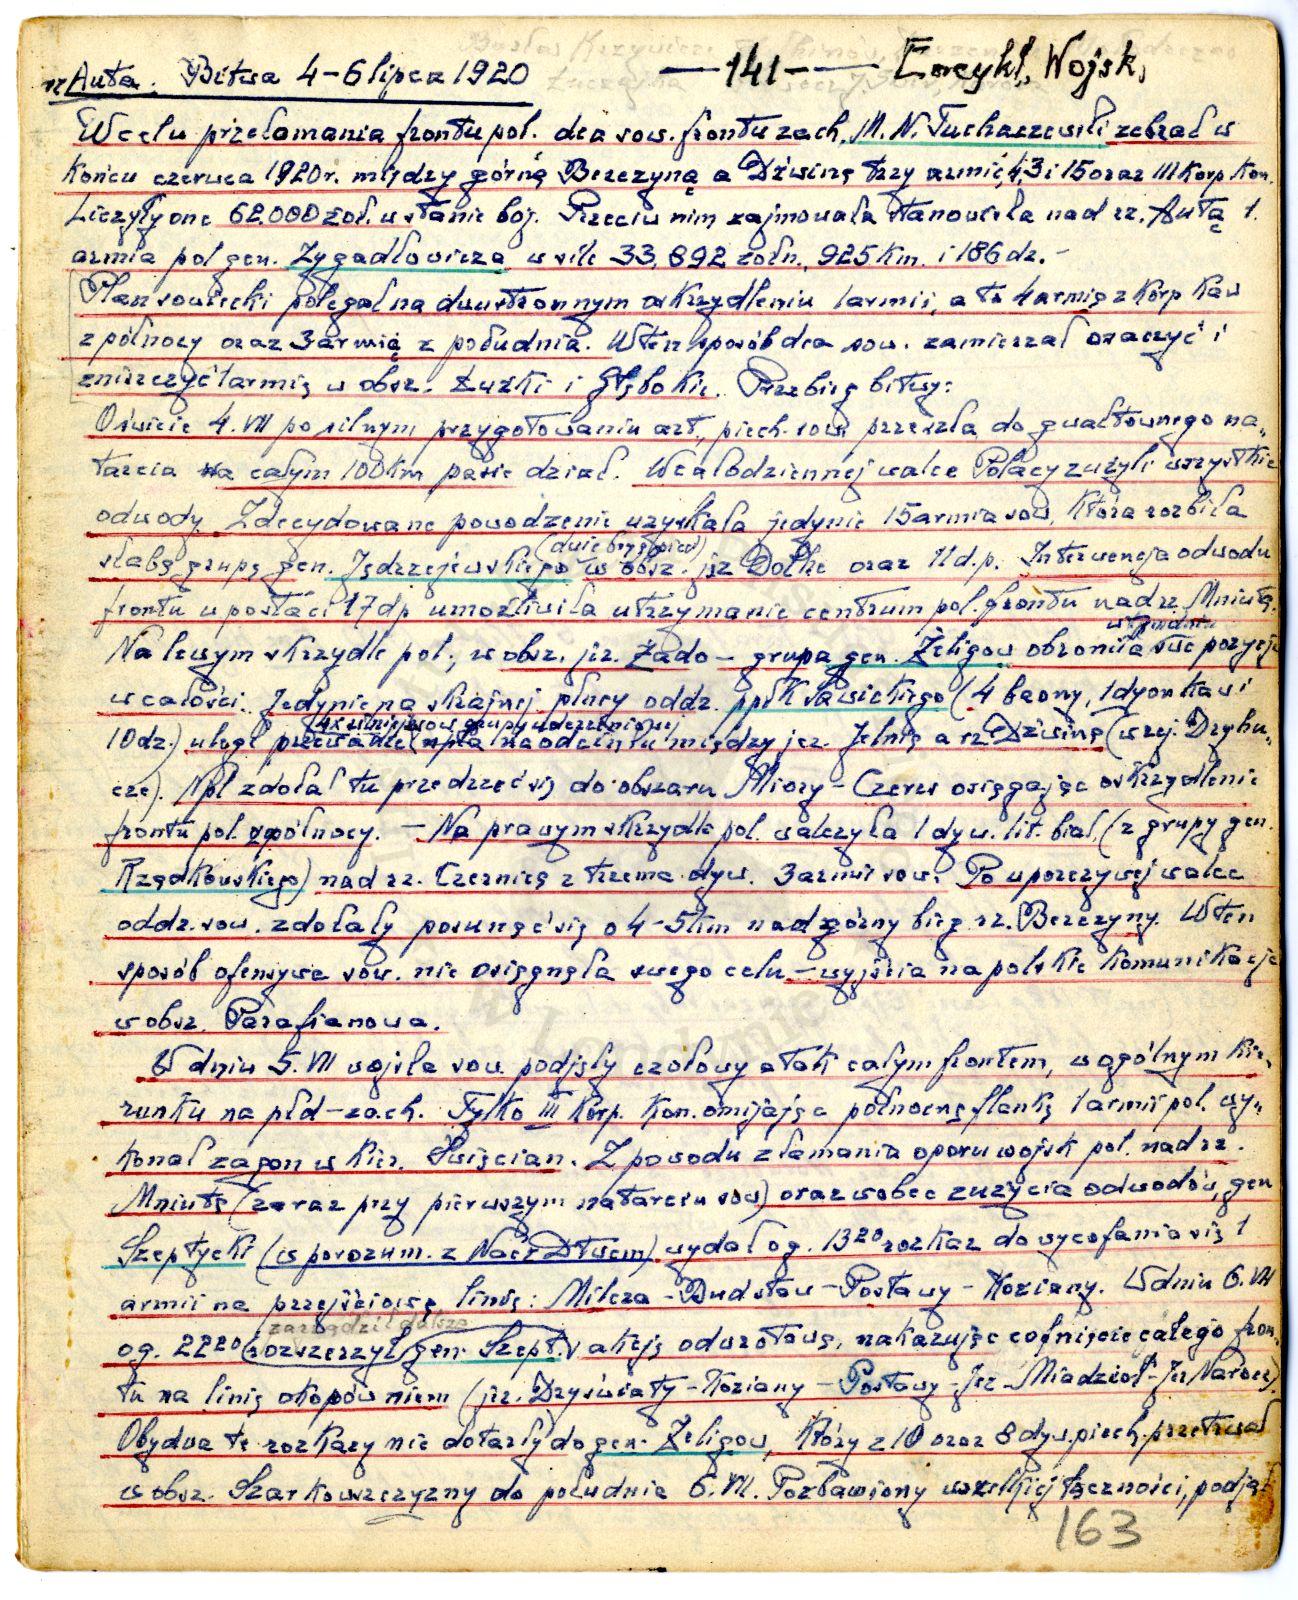 rz Auta. Bitwa 4-6 lipca 1920 —141— Encykl. Wojsk.
W celu przełamania frontu pol. dca sow. frontu zach. M. N. Tuchaczewski zebrał w
końcu czerwca 1920r. między górną Berezyną a Dźwiną trzy armie, 4, 3 i 15 oraz III Korp Kon.
Liczyły one 62.000 żoł. w stanie boj. Przeciw nim zajmowała stanowiska nad rz. Autą 1.
armia pol gen. Zygadłowicza w sile 33,892 żołn., 925 km. i 186 dz. —
Plan sowiecki polegał na dwustronnym oskrzydleniu 1 armii, a to 4 armię z Korp Kaw
z północy oraz 3 armią z południa. W ten sposób dca sow. zamierzał otaczyć i
zniszczyć 1 armię w obsz. Łużki i Głębokie. Przebieg bitwy:
O świcie 4.VII po silnym przygotowaniu art., piech. sow. przeszła do gwałtownego na„
tarcia na całym 100 km pasie dział. W całodziennej walce Polacy zużyli wszystkie
odwody. Zdecydowane powodzenie uzyskała jedynie 15 armia sow. która rozbiła
(dwie bryg piech)
słabą grupę gen. Jędrzejewskiego w obsz. jez Dołhe oraz 11 d.p. Interwencja odwodu
frontu w postaci 17 dp umożliwiła utrzymanie centrum pol. frontu nad rz. Mniutą.
Na lewym skrzydle pol., w obsz. jez. Żado — grupa gen. Żeligow obroniła swe pozycje
w całości. Jedynie na skrajnej płncy oddz. ppłk Sawickiego (4 baony, 1 dyon kaw i
10 dz.) uległ przewadze npla na odcinku między jez. Jelnią a rz. Dźwiną (wsej. Dryhu„
cze). Npl zdołał tu przedrzeć się do obszaru Miory - Czeres osiągając oskrzydlenie
frontu pol. z północy. — Na prawym skrzydle pol. walczyła 1 dyw. lit. biał. (z grupy gen.
Rządkowskiego) nad rz. Czernicą z trzema dyw. 3 armii sow. Po uporczywej walce
oddz. sow. zdołały posunąć się o 4-5 km nad górny bieg rz. Berezyny. W ten
sposób ofensywa sow. nie osiągnęła swego celu — wyjścia na polskie komunikacje
w obsz. Parafianowa.
W dniu 5.VII wojska sow podjęły czołowy atak całym frontem, w ogólnym kie„
runku na płd-zach. Tylko III Korp. Kon. omijając północną flankę 1 armii pol. wy„
konał zagon w kier. Święcian. Z powodu złamania oporu wojsk pol. nad rz.
Mniutą (zaraz przy pierwszym natarciu sow) oraz wobec zużycia odwodów, gen
Szeptycki (w porozum. z Nacz Dłwem) wydał o g. 13²⁰ rozkaz do wycofania się 1
armii na przejściową linię: Milcza - Budsław - Postawy - Koziany. W dniu 6.VII
zarządził dalsze
o g. 22²⁰ rozszerzył gen. Szept. akcję odwrotową, nakazując cofnięcie całego fron„
tu na linię okopów niem (jez. Dryświaty - Koziany - Postawy - Jez Miadzioł - Jez Narocz).
Obydwa te rozkazy nie dotarły do gen. Żeligow, który z 10 oraz 8 dyw piech. przetrwał
w obsz. Szarkowszczyzny do południa 6.VII. Pozbawiony wszelkiej łączności, podjął
163